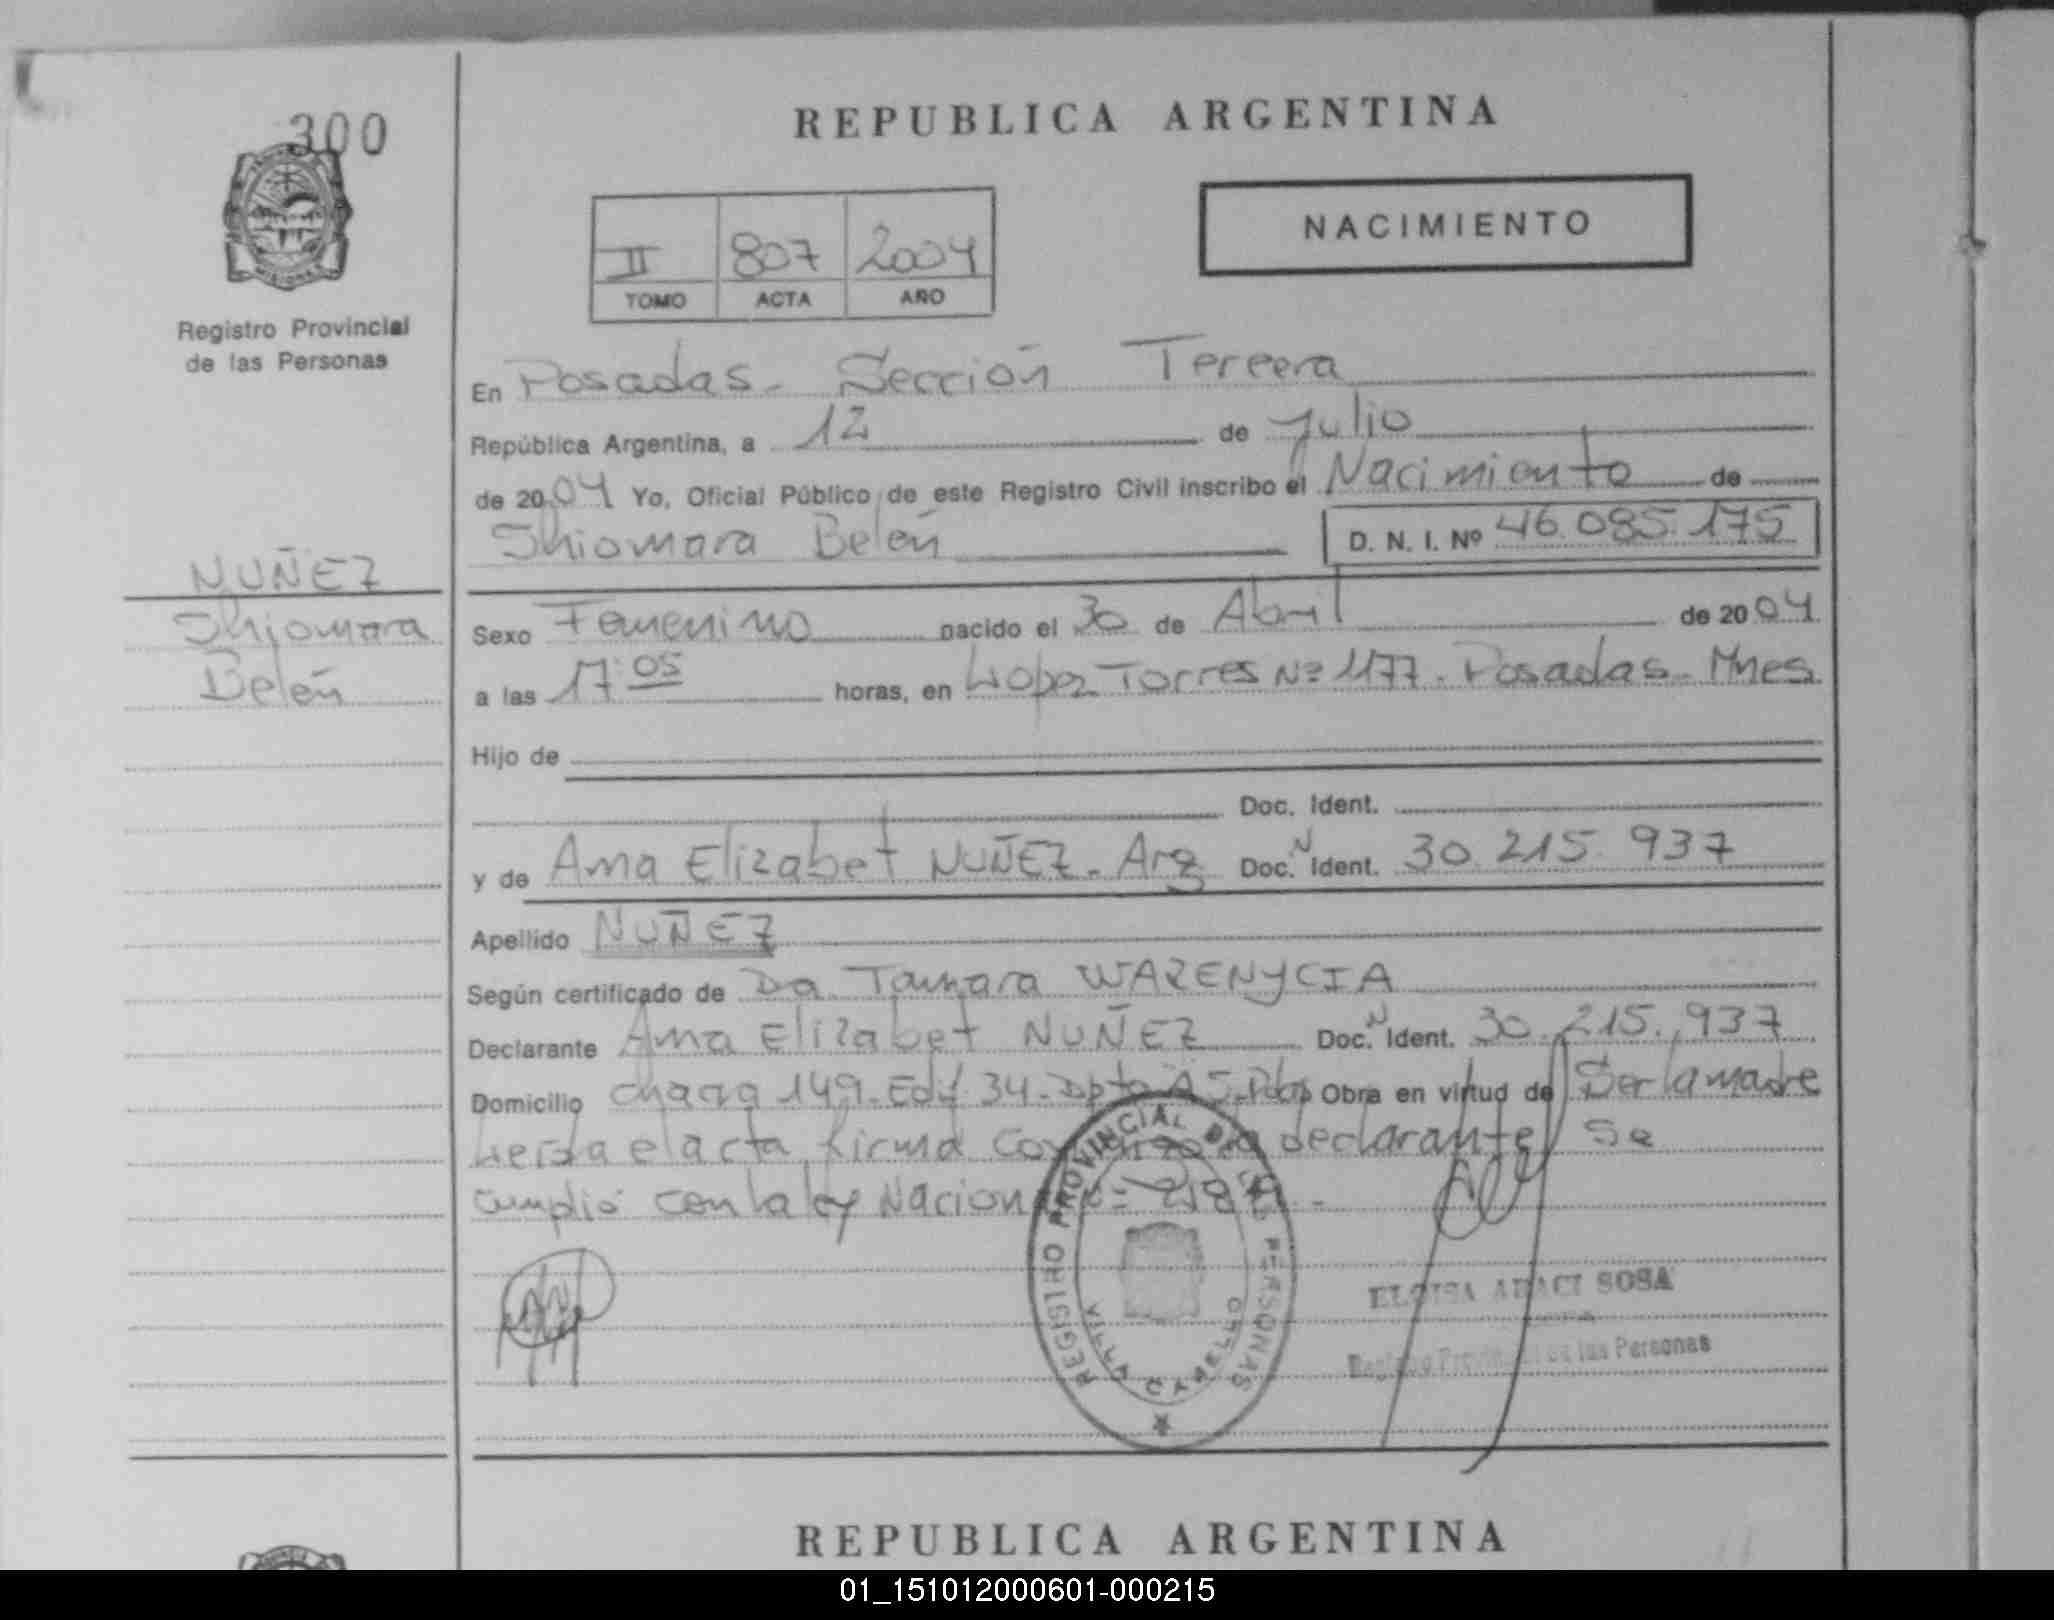 300
REPUBLICA ARGENTINA
NACIMIENTO
II 807 2004
TOMO ACTA AÑO
MISIONES
Registro Provincial
de las Personas
En Posadas - Sección Tercera
República Argentina, a 12 de Julio
de 2004 Yo, Oficial Público de este Registro Civil inscribo el Nacimiento de
Shiomara Belén D. N. I. Nº 46.085.175
NUÑEZ
Shiomara
Belén
Sexo Femenino nacido el 30 de Abril de 2004
a las 17:05 horas, en López Torres Nº 1177. Posadas - Mnes
Hijo de
Doc. Ident.
y de Ana Elizabet NUÑEZ - Arg Doc. N Ident. 30.215.937
Apellido NUÑEZ
Según certificado de Da. Tamara WAZENYCIA
Declarante Ana Elizabet NUÑEZ Doc. N Ident. 30.215.937
Domicilio Chacra 149 - Edif 34 - Dpto A5 - Pdas Obra en virtud de Ser la madre
Leida el acta firma conmigo la declarante Se
cumplió con la ley Nacional
REGISTRO PROVINCIAL DE LAS PERSONAS
VILLA CABELLO
ELOISA ARACI SOSA
Registro Provincial de las Personas
REPUBLICA ARGENTINA
01_151012000601-000215